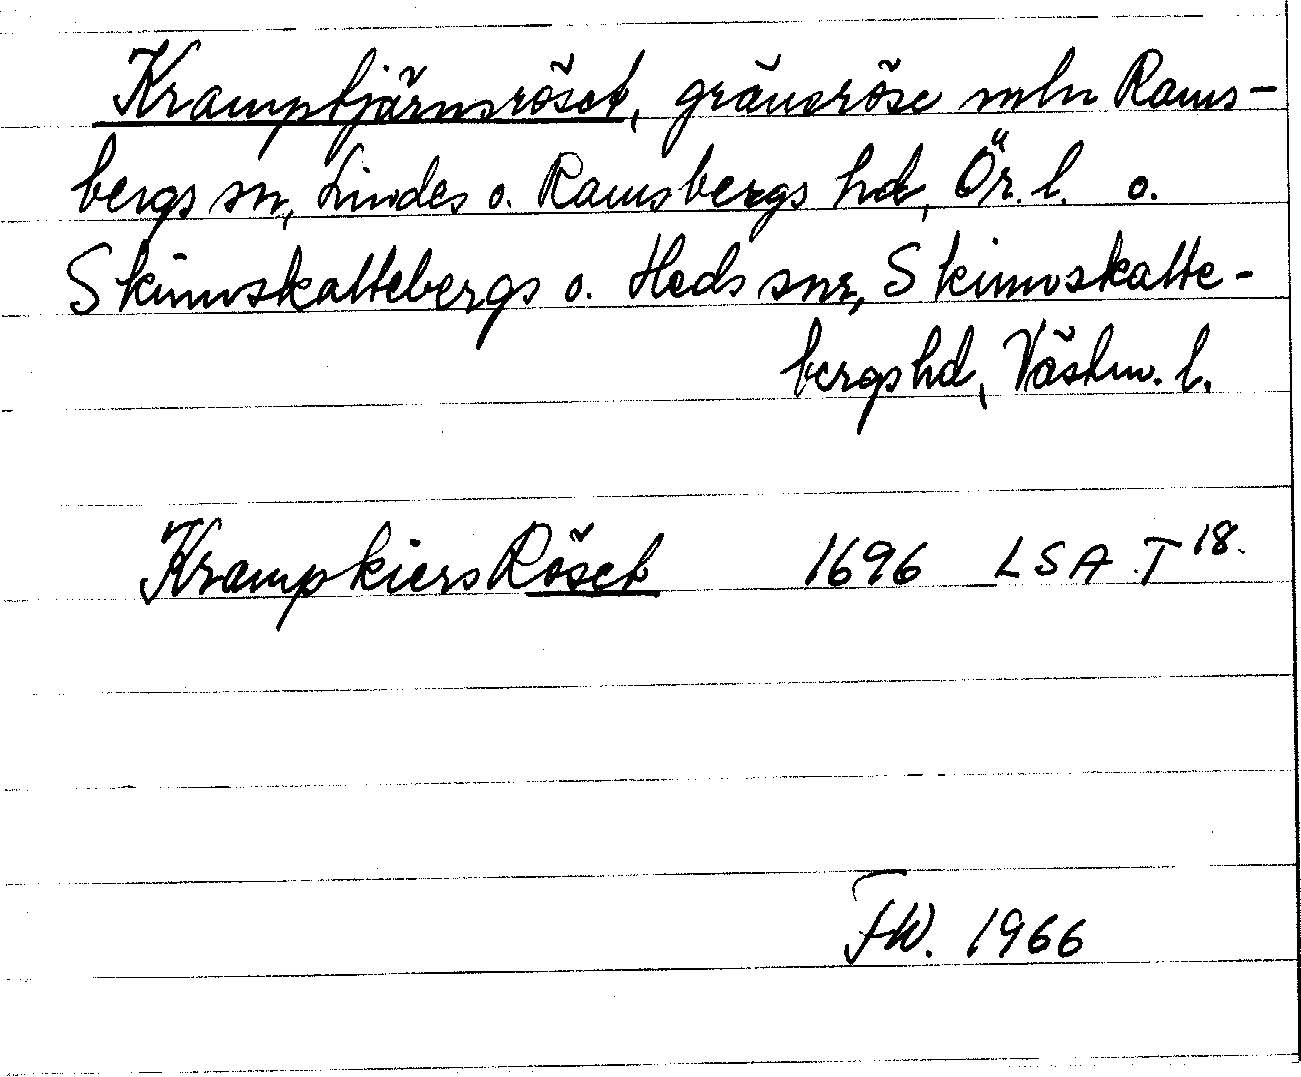 Kramptjärnsröset, gränsröse mln Rams-
bergs sn, Lindes o. Ramsbergs hd, Ör. l. o.
Skinnskattebergs o. Heds snr, Skinnskatte-
bergs hd, Västm. l.
KrampkiersRöset 1696 LSA T 18.
FW. 1966